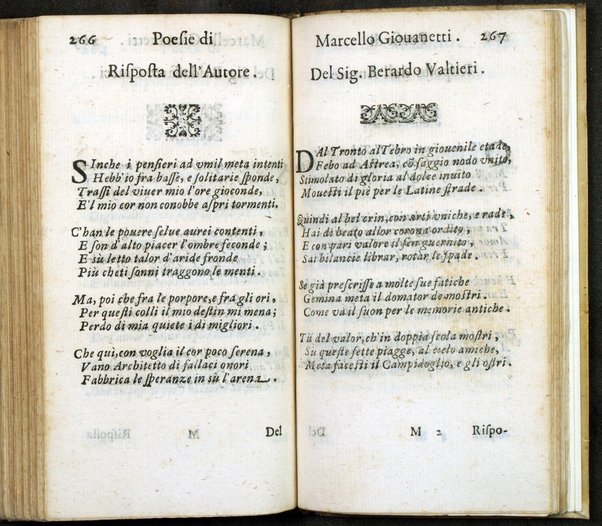 266 Poesie di
Risposta dell'Autore.
SInche i pensieri ad vmil meta intenti
Hebb'io fra basse, e solitarie sponde,
Trassi del viuer mio l'ore gioconde,
E'l mio cor non conobbe aspri tormenti.
C'han le pouere selue aurei contenti,
E son d'alto piacer l'ombre feconde;
E sù letto talor d'aride fronde
Più cheti sonni traggono le menti.
Ma, poi che fra le porpore, e fra gli ori,
Per questi colli il mio destin mi mena;
Perdo di mia quiete i dì migliori.
Che qui, con voglia il cor poco serena,
Vano Architetto di fallaci onori
Fabbrica le speranze in sù l'arena.
Del
Marcello Giouanetti. 267
Del Sig. Berardo Valtieri.
DAl Tronto al Tebro in giouenile etade,
Febo ad Astrea, cō saggio nodo vnito,
Stimolato di gloria al dolce inuito
Mouesti il piè per le Latine strade.
Quindi al bel crin, con arti vniche, e rade,
Hai di beato allor corona ordito,
E con pari valore il sen guernito,
Sai bilancie librar, rotar le spade.
Se già prescrisse a molte sue fatiche
Gemina meta il domator de mostri.
Come và il suon per le memorie antiche.
Tù del valor, ch'in doppia scola mostri,
Su queste sette piagge, al cielo amiche,
Meta facesti il Campidoglio, e gli ostri.
M 2 Rispo-